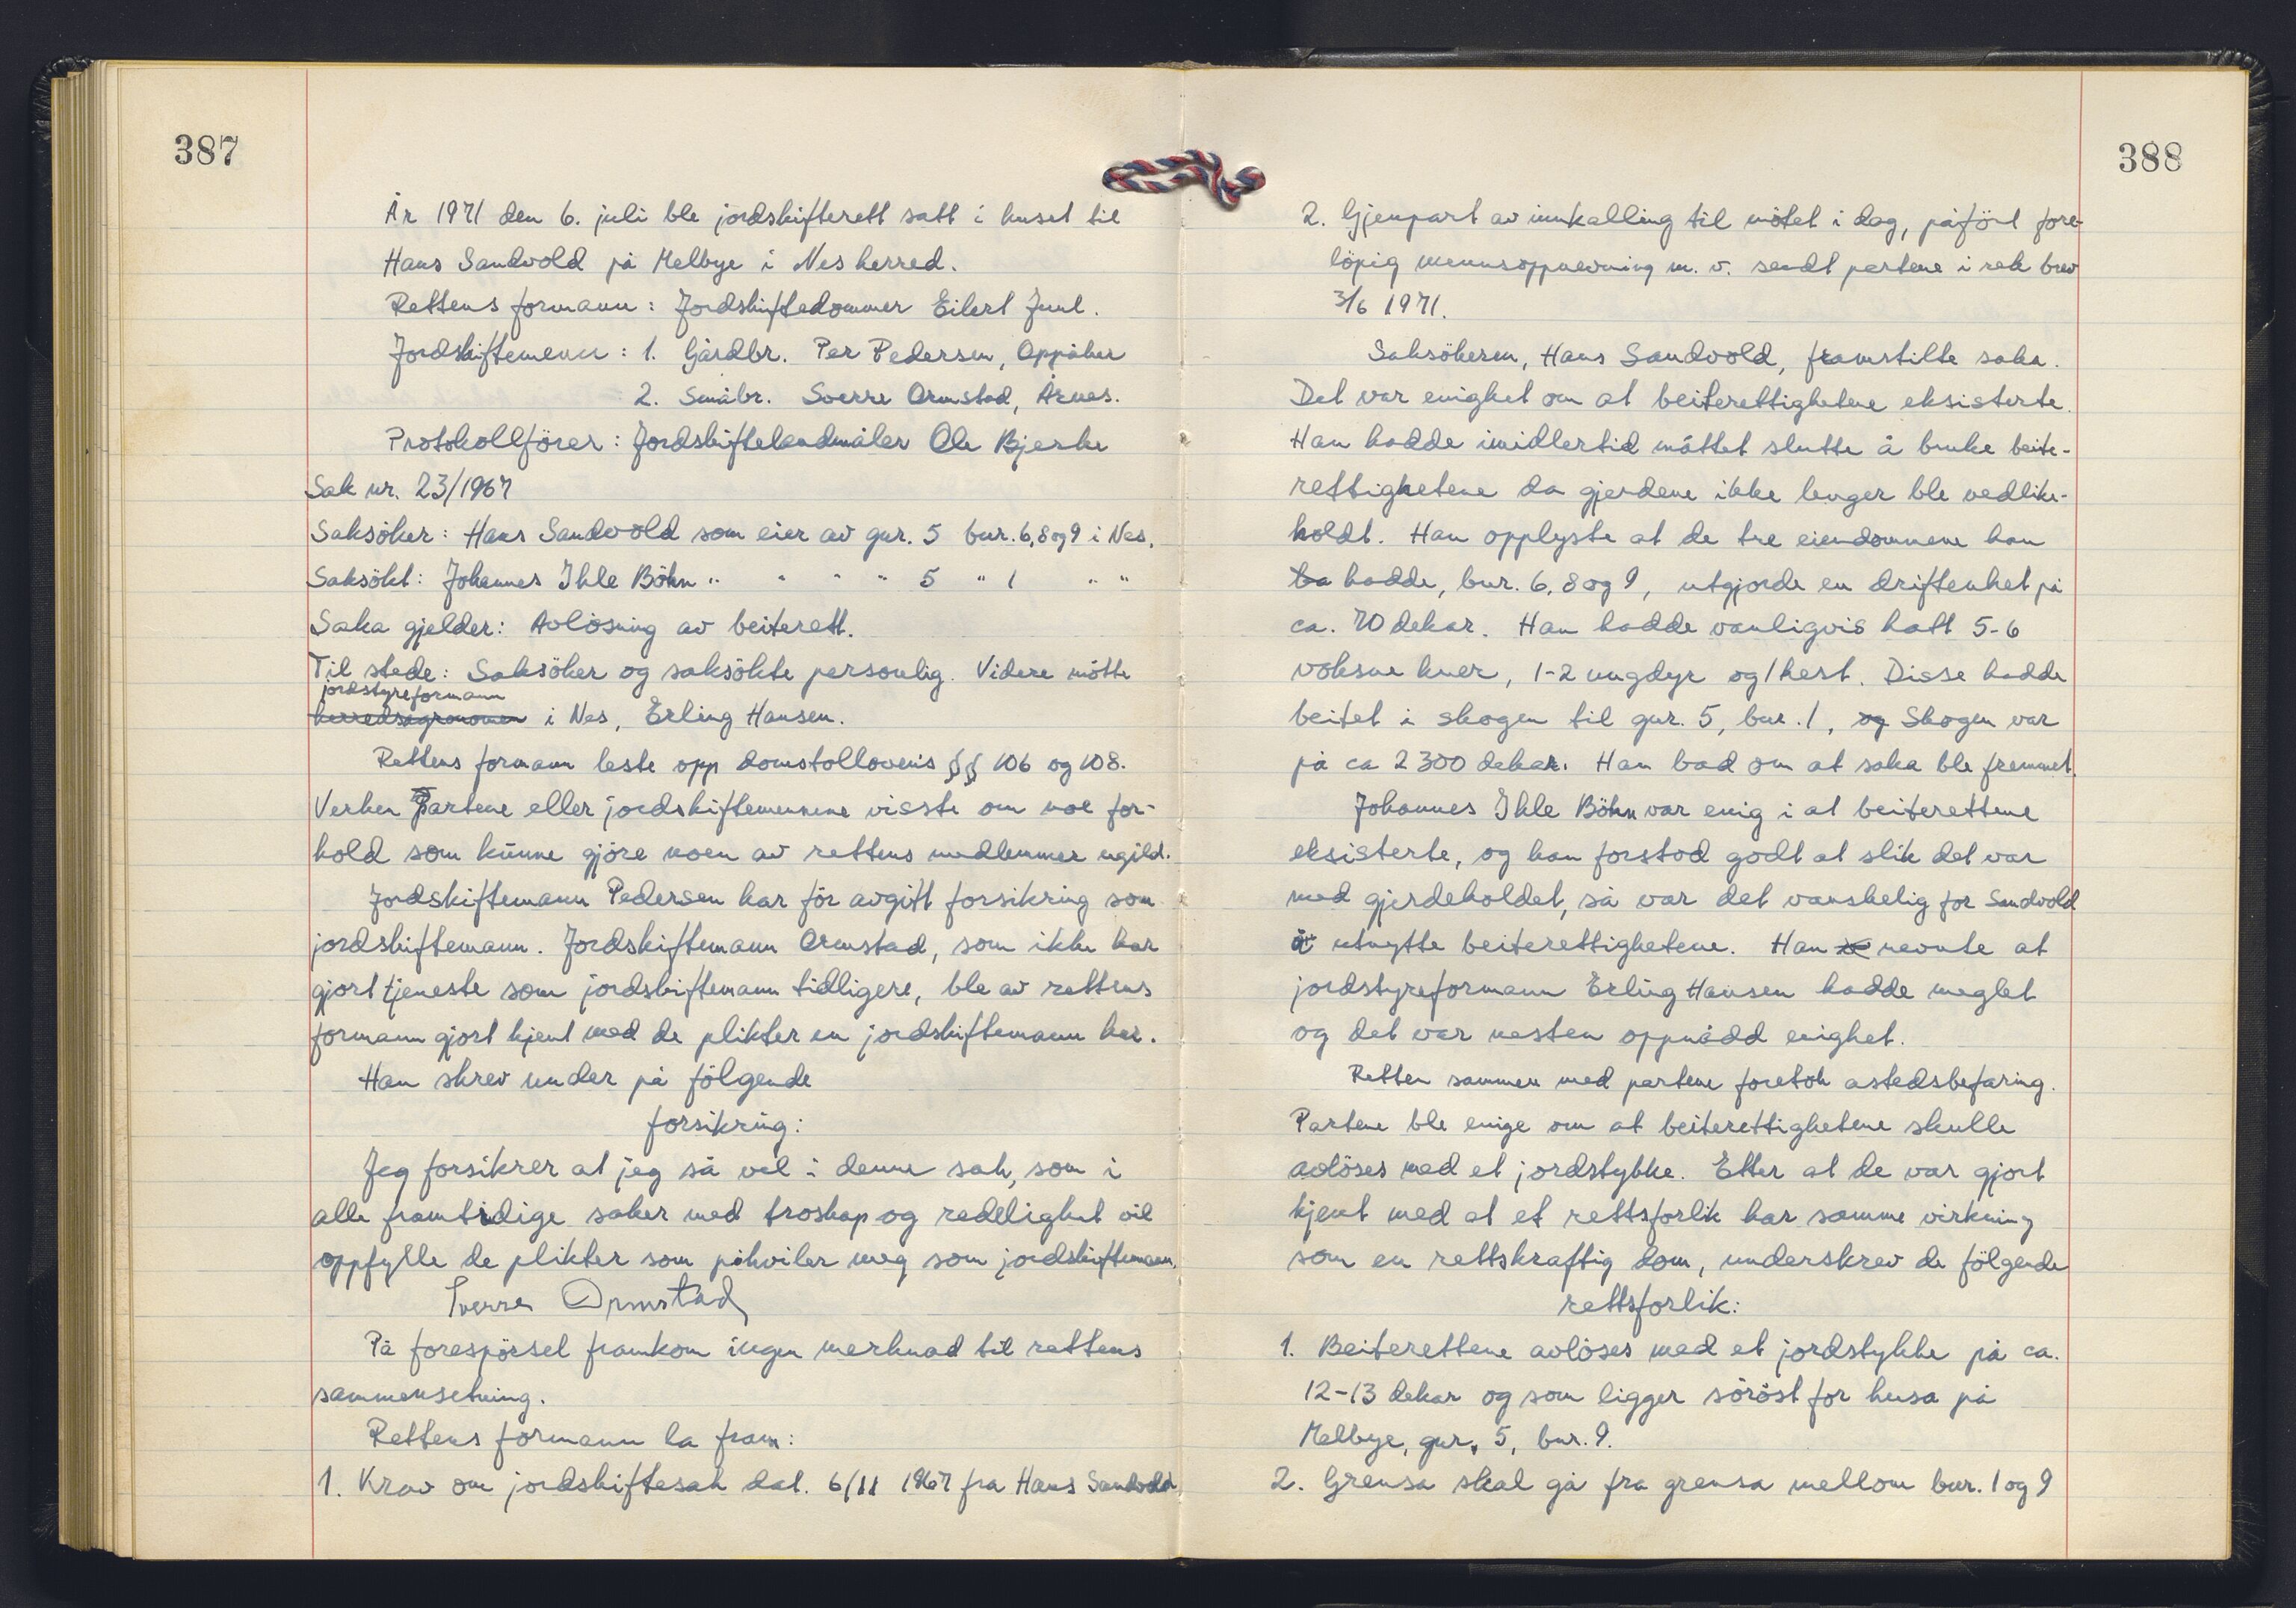 387
År 1971 den 6. juli ble jordskifterett satt i huset til
Hans Sandvold på Melbye i Nes herred.
Rettens formann: Jordskiftedommer Eilert Juul.
Jordskiftemenn: 1. Gårdbr. Per Pedersen, Oppåker
2. Småbr. Sverre Ormstad, Årnes.
Protokollförer: Jordskiftelandmåler Ole Bjerke
Sak nr. 23/1967
Saksöker: Hans Sandvold som eier av gnr. 5 bnr. 6,8 og 9 i Nes.
Saksökt: Johannes Ihle Böhn " " " " 5 " 1 " "
Saka gjelder: Avlösning av beiterett.
Til stede: Saksöker og saksökte personlig. Videre mötte
jordstyreformann
herredsagronomen i Nes, Erling Hansen.
Rettens formann leste opp domstollovens §§ 106 og 108.
Verken Partene eller jordskiftemennene visste om noe for-
hold som kunne gjöre noen av rettens medlemmer ugild.
Jordskiftemann Pedersen har för avgitt forsikring som
jordskiftemann. Jordskiftemann Ormstad, som ikke har
gjort tjeneste som jordskiftemann tidligere, ble av rettens
formann gjort kjent med de plikter en jordskiftemann har.
Han skrev under på fölgende
forsikring:
Jeg forsikrer at jeg så vel i denne sak, som i
alle framtidige saker med troskap og redelighet vil
oppfylle de plikter som påhviler meg som jordskiftemann.
Sverre Ormstad
På forespörsel framkom ingen merknad til rettens
sammensetning.
Rettens formann la fram:
1. Krav om jordskiftesak dat. 6/11 1967 fra Hans Sandvold
388
2. Gjenpart av innkalling til mötet i dag, påfört fore-
löpig mennsoppnevning m. v. sendt partene i rek brev
3/6 1971.
Saksökeren, Hans Sandvold, framstilte saka.
Det var enighet om at beiterettighetene eksisterte.
Han hadde imidlertid måttet slutte å bruke beite-
rettighetene da gjerdene ikke lenger ble vedlike-
holdt. Han opplyste at de tre eiendommene han
ha hadde, bnr. 6, 8 og 9, utgjorde en driftenhet på
ca. 70 dekar. Han hadde vanligvis hatt 5-6
voksne kuer, 1-2 ungdyr og 1 hest. Disse hadde
beitet i skogen til gnr. 5, bnr. 1, og Skogen var
på ca 2 300 dekar. Han bad om at saka ble fremmet.
Johannes Ihle Böhn var enig i at beiterettene
eksisterte, og han forstod godt at slik det var
med gjerdeholdet, så var det vanskelig for Sandvold
å utnytte beiterettighetene. Han nevnte at
jordstyreformann Erling Hansen hadde meglet
og det var nesten oppnådd enighet.
Retten sammen med partene foretok åstedsbefaring.
Partene ble enige om at beiterettighetene skulle
avlöses med et jordstykke. Etter at de var gjort
kjent med at et rettsforlik har samme virkning
som en rettskraftig dom, underskrev de fölgende
rettsforlik:
1. Beiterettene avlöses med et jordstykke på ca.
12-13 dekar og som ligger söröst for husa på
Melbye, gnr. 5, bnr. 9.
2. Grensa skal gå fra grensa mellom bnr. 1 og 9